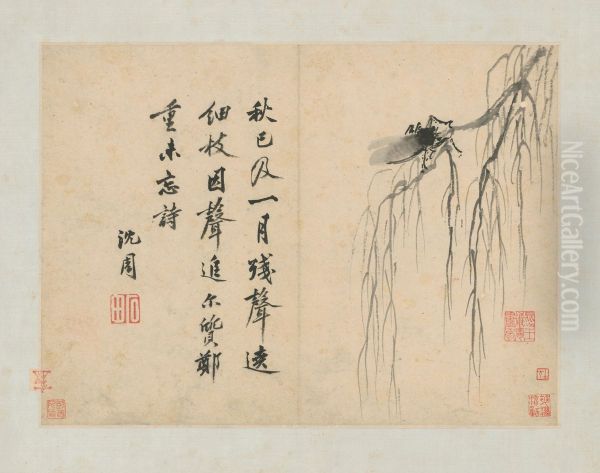 秋已及一月殘聲遶
細枝因聲進尔質鄭
重未忘詩
沈周
石田
NiceArtGallery.com